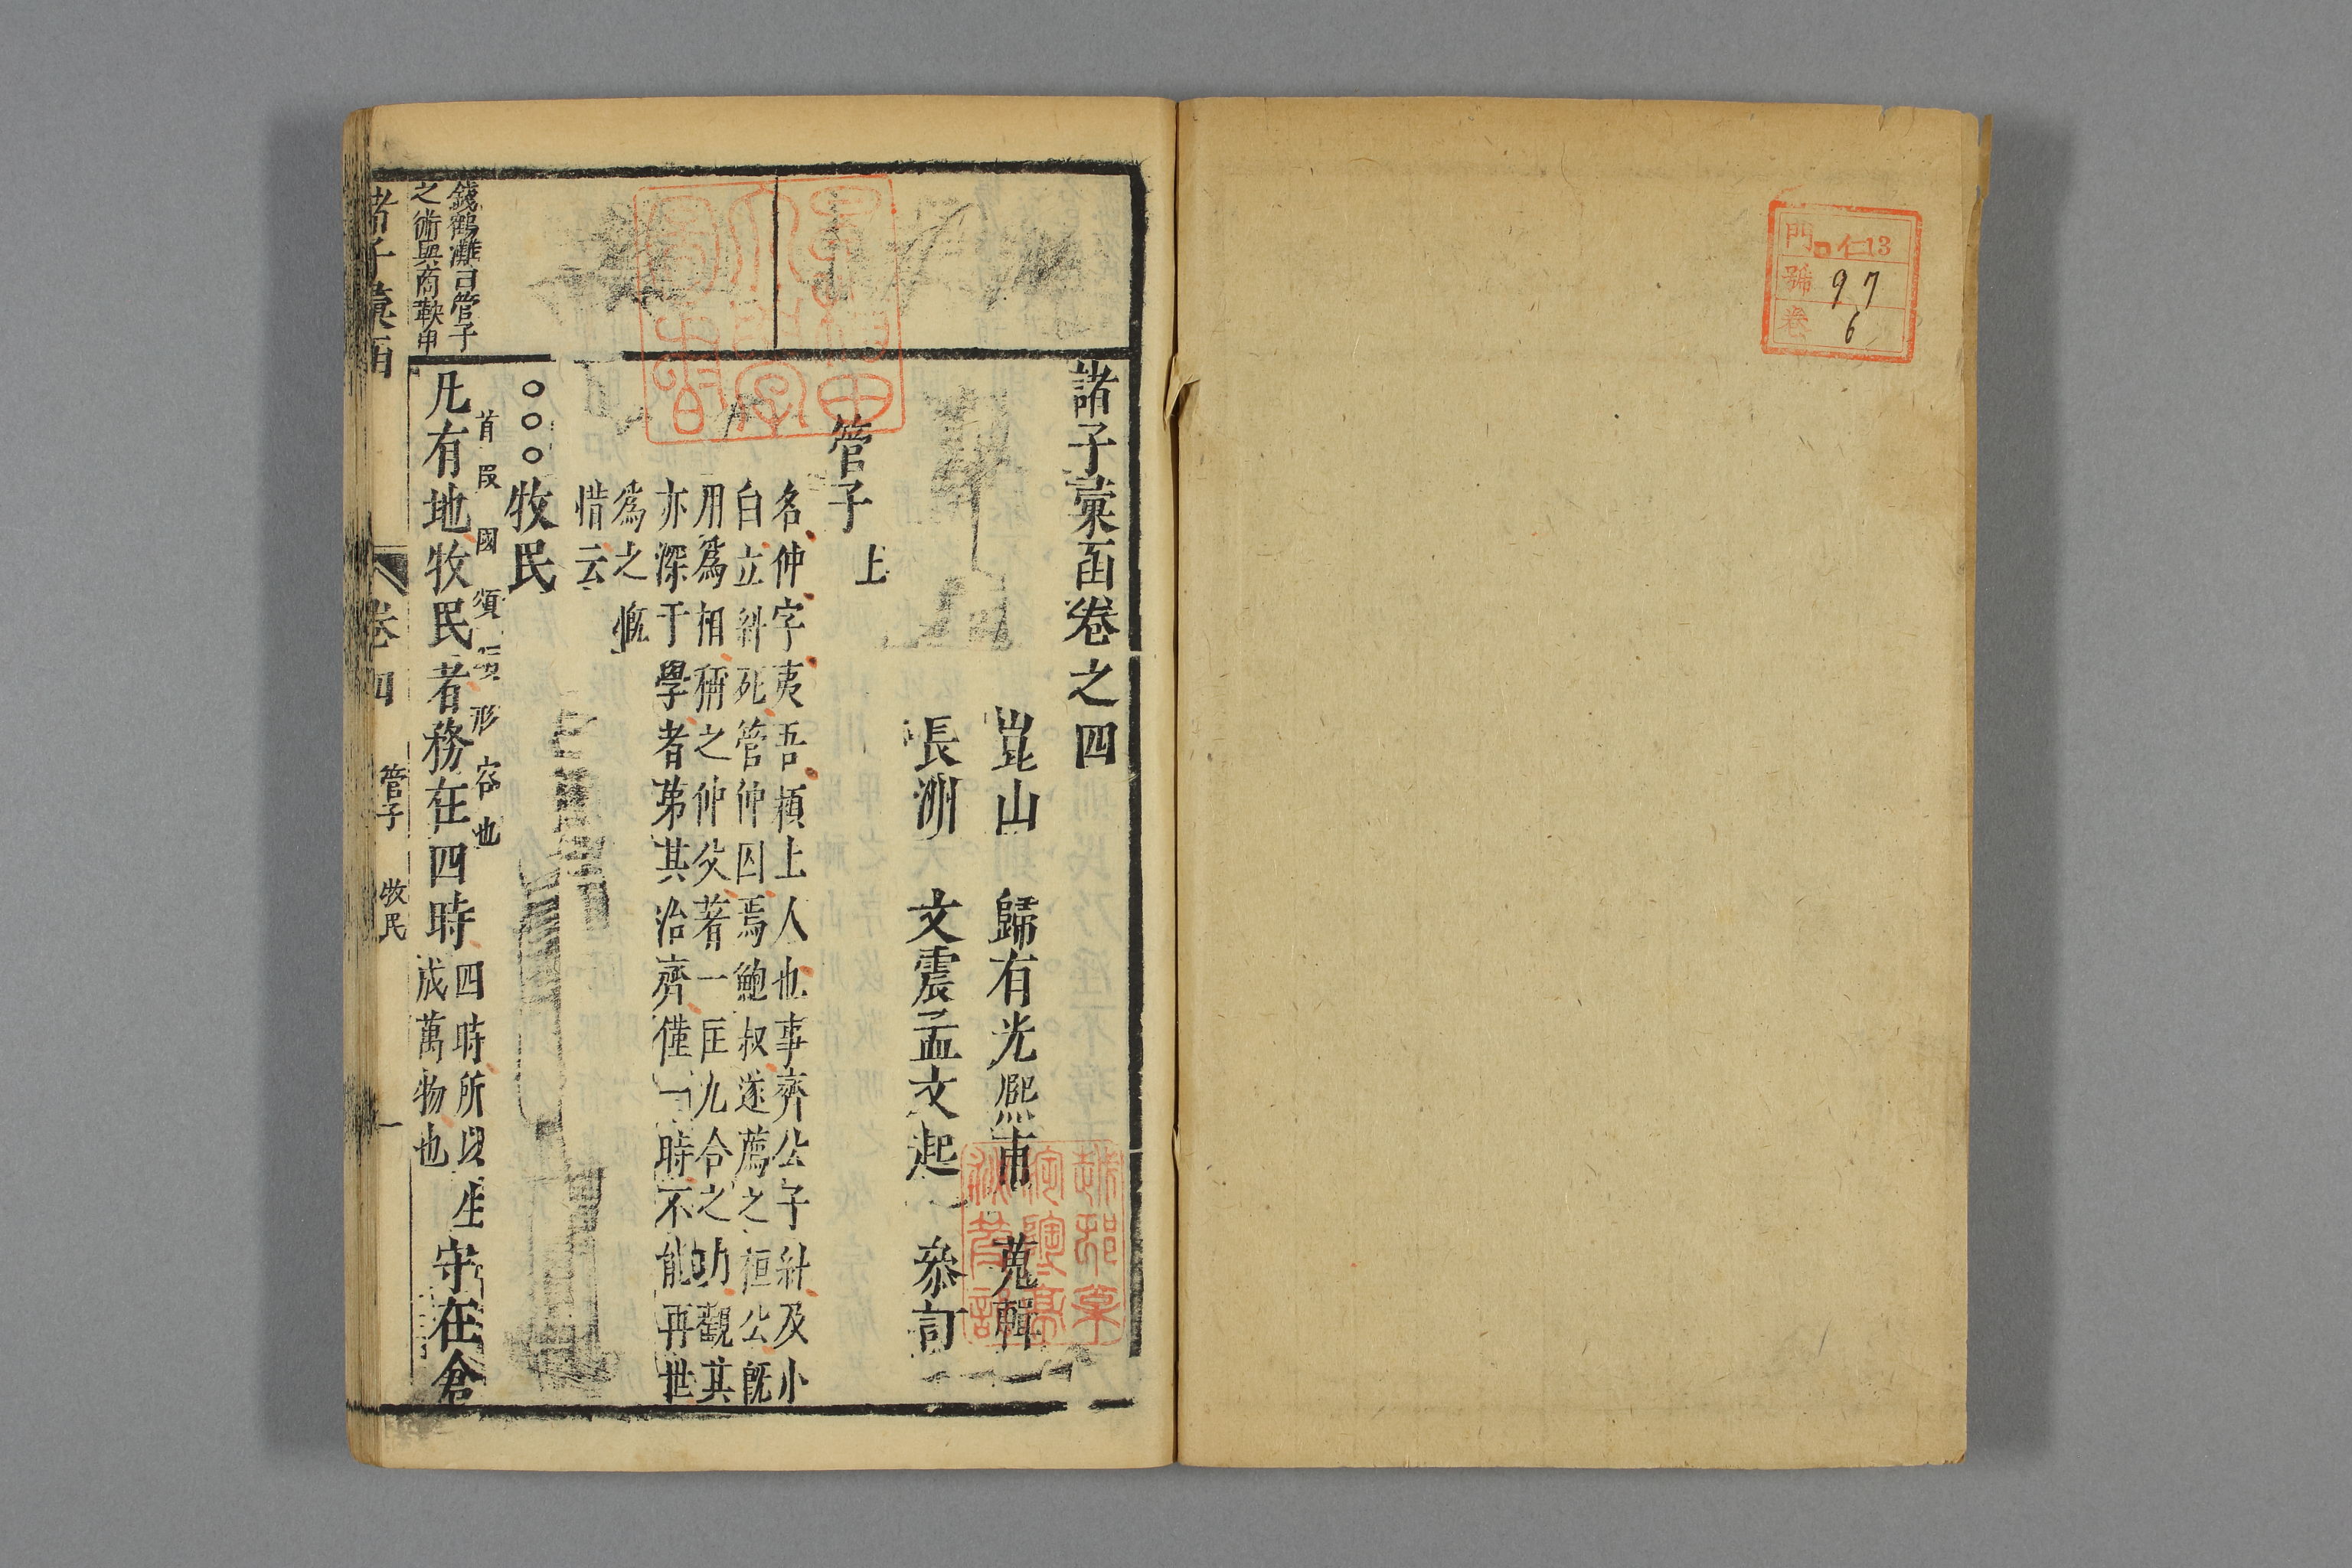 門 ロ仁13
號 97
卷 6
諸子彚函卷之四
崑山 歸有光熙甫 蒐輯
長洲 文震孟文起 叅訂
管子 上
名仲字夷吾潁上人也事齊公子糾及小
白立糾死管仲囚焉鮑叔遂薦之桓公既
用爲相稱之仲父著一匡九合之功觀其
亦深于學者苐其治齊僅一時不能再世
爲之慨
惜云
○○○牧民
首段國頌 形容也
凡有地牧民者務在四時四時所以生成萬物也守在倉
錢鶴灘曰管子
之術與商鞅申
諸子彚函 卷四 管子 牧民 一